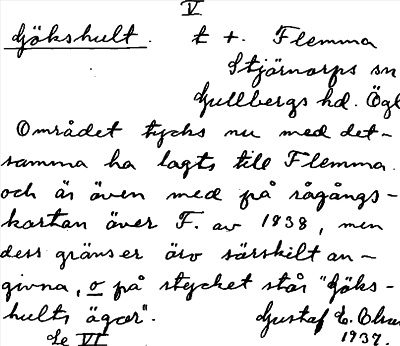 V
Gökshult. t +. Flemma
Stjärnorps sn
Gullbergs hd. Ögl
Området tycks nu med det-
samma ha lagts till Flemma.
och är även med på rågångs-
kartan över F. av 1838, men
dess gränser äro särskilt an-
givna, o på stycket står "Göks-
hults ägor". Gustaf E. Olsson
Se VI 1937.